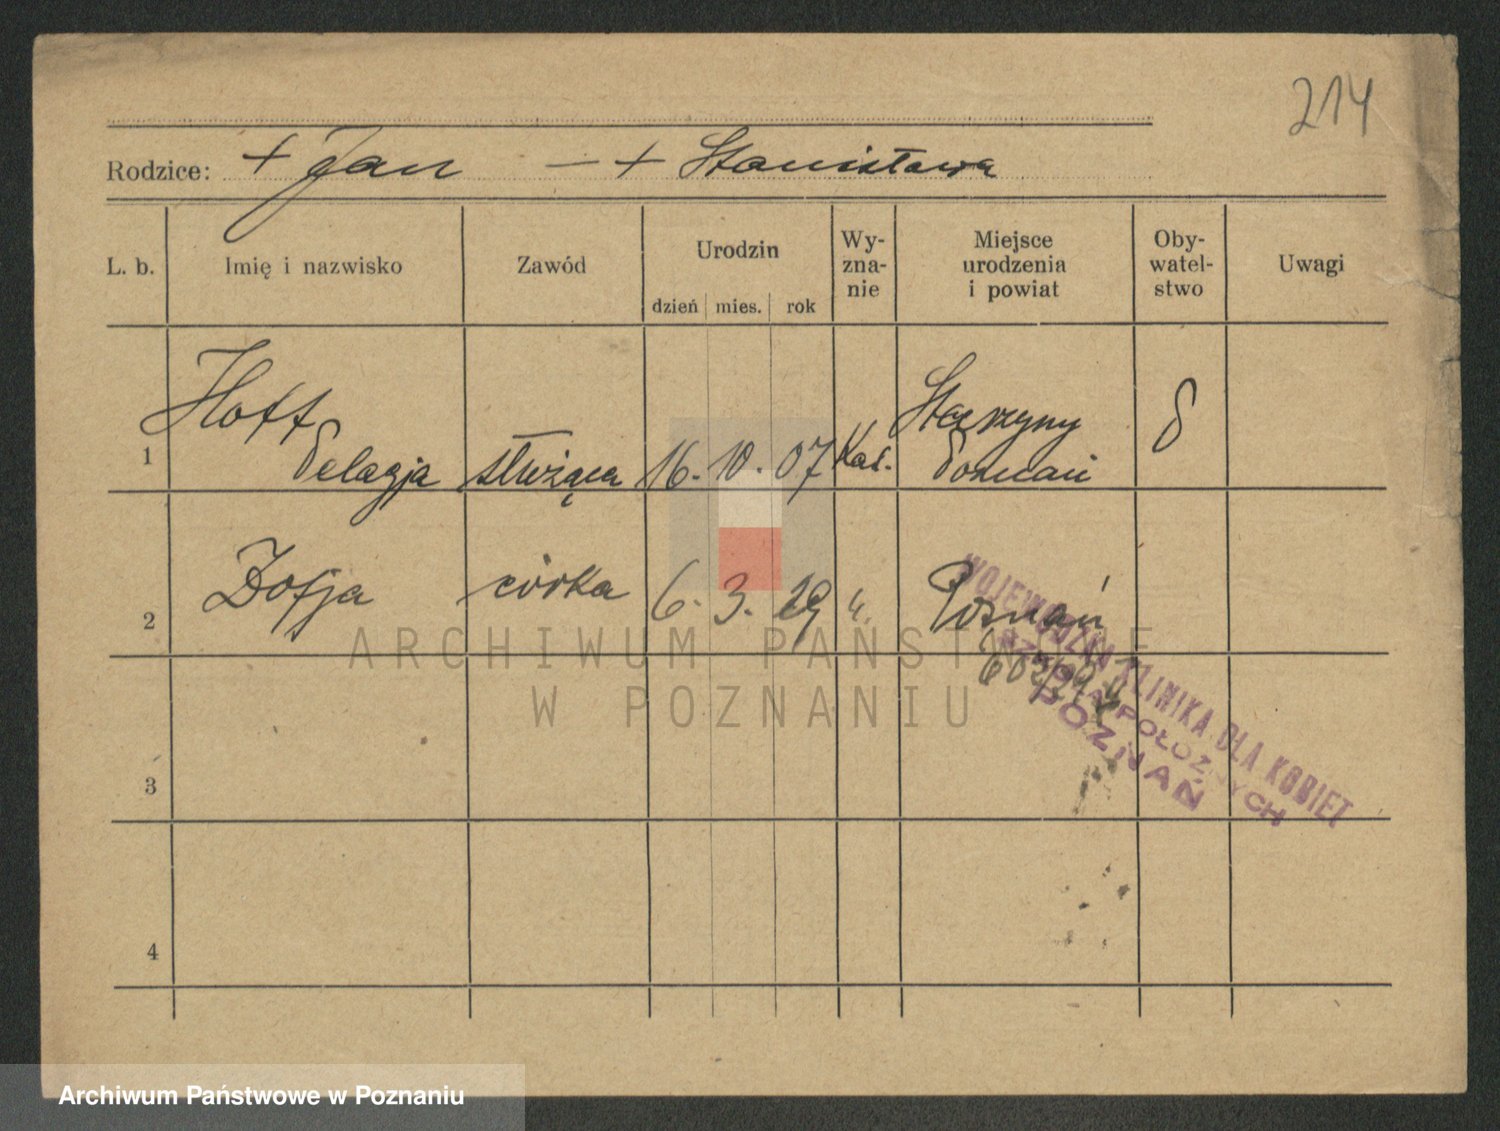 214
Rodzice: + Jan — + Stanisława
L. b. Imię i nazwisko Zawód Urodzin Wy-zna-nie Miejsce urodzenia i powiat Oby-watel-stwo Uwagi
dzień mies. rok
Hoff
1 Pelagja służąca 16. 10. 07 Kat. Poznań
2 Zofja córka 6. 3. 29 " Poznań
WOJEWÓDZKA KLINIKA DLA KOBIET
POŁOŻNYCH
POZNAŃ
3
4
ARCHIWUM PAŃSTWOWE
W POZNANIU
Archiwum Państwowe w Poznaniu